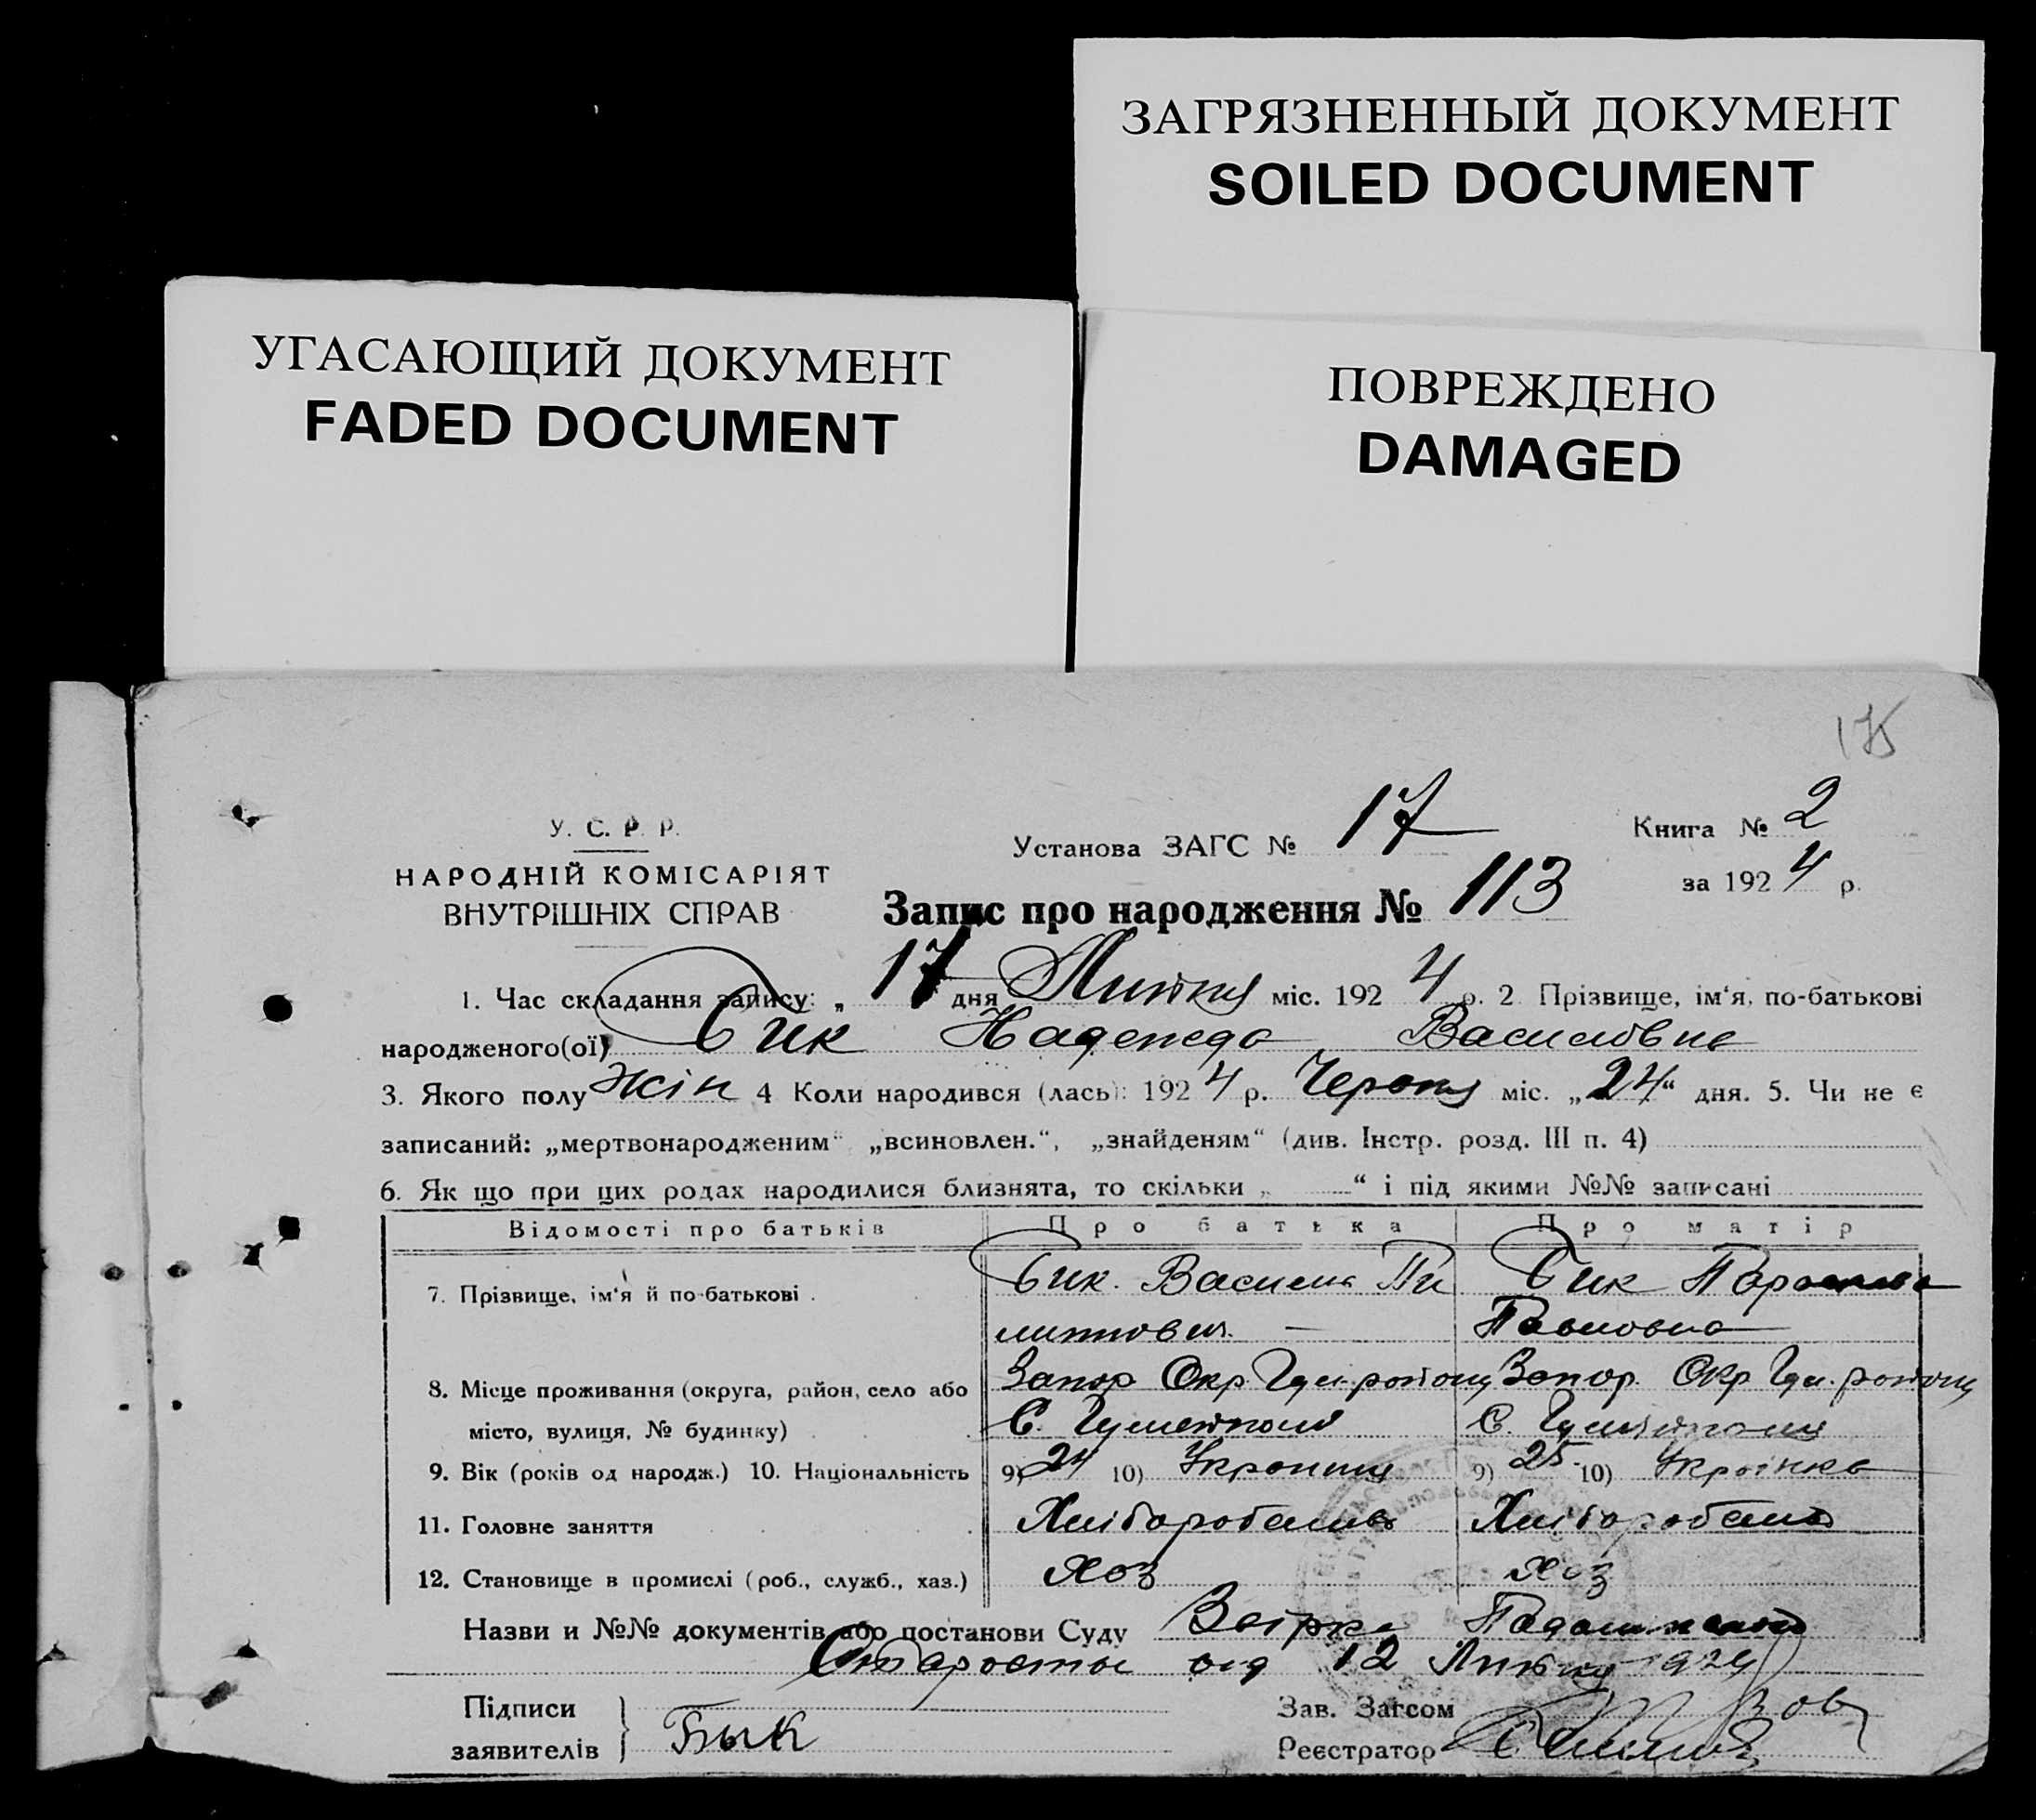 ЗАГРЯЗНЕННЫЙ ДОКУМЕНТ
SOILED DOCUMENT
УГАСАЮЩИЙ ДОКУМЕНТ
FADED DOCUMENT
ПОВРЕЖДЕНО
DAMAGED
175
У. С. Р. Р.
НАРОДНІЙ КОМІСАРІЯТ
ВНУТРІШНІХ СПРАВ
Установа ЗАГС № 17
Книга № 2
за 1924 р.
Запис про народження № 113
1. Час складання запису: „ 17 дня Липня міс. 1924 р. 2 Прізвище, ім'я, по-батькові
народженого(ої) Бик Надежда Василовна
3. Якого полу жін 4 Коли народився (лась): 1924 р. Червня міс. „24“ дня. 5. Чи не є
записаний: „мертвонародженим“ „всиновлен.“, „знайденям“ (див. Інстр. розд. III п. 4)
6. Як що при цих родах народилися близнята, то скільки „ “ і під якими №№ записані
Відомості про батьків Про батька Про матір
7. Прізвище, ім'я й по-батькові . Бик Василь Пи Бик
липович. Павловна
8. Місце проживання (округа, район, село або Запор Окр Гул. району Запор. Окр Гул. району
місто, вулиця, № будинку) С. С.
9. Вік (років од народж.) 10. Національність 9) 24 10) Украинц 9) 25 10) Українка
11. Головне заняття Хліборобство Хліборобство
12. Становище в промислі (роб., служб., хаз.) Хоз Хоз
Назви и №№ документів або постанови Суду
Старосты від 12 Липня 1924
Підписи
заявителів Бык
Зав. Загсом
Реєстратор